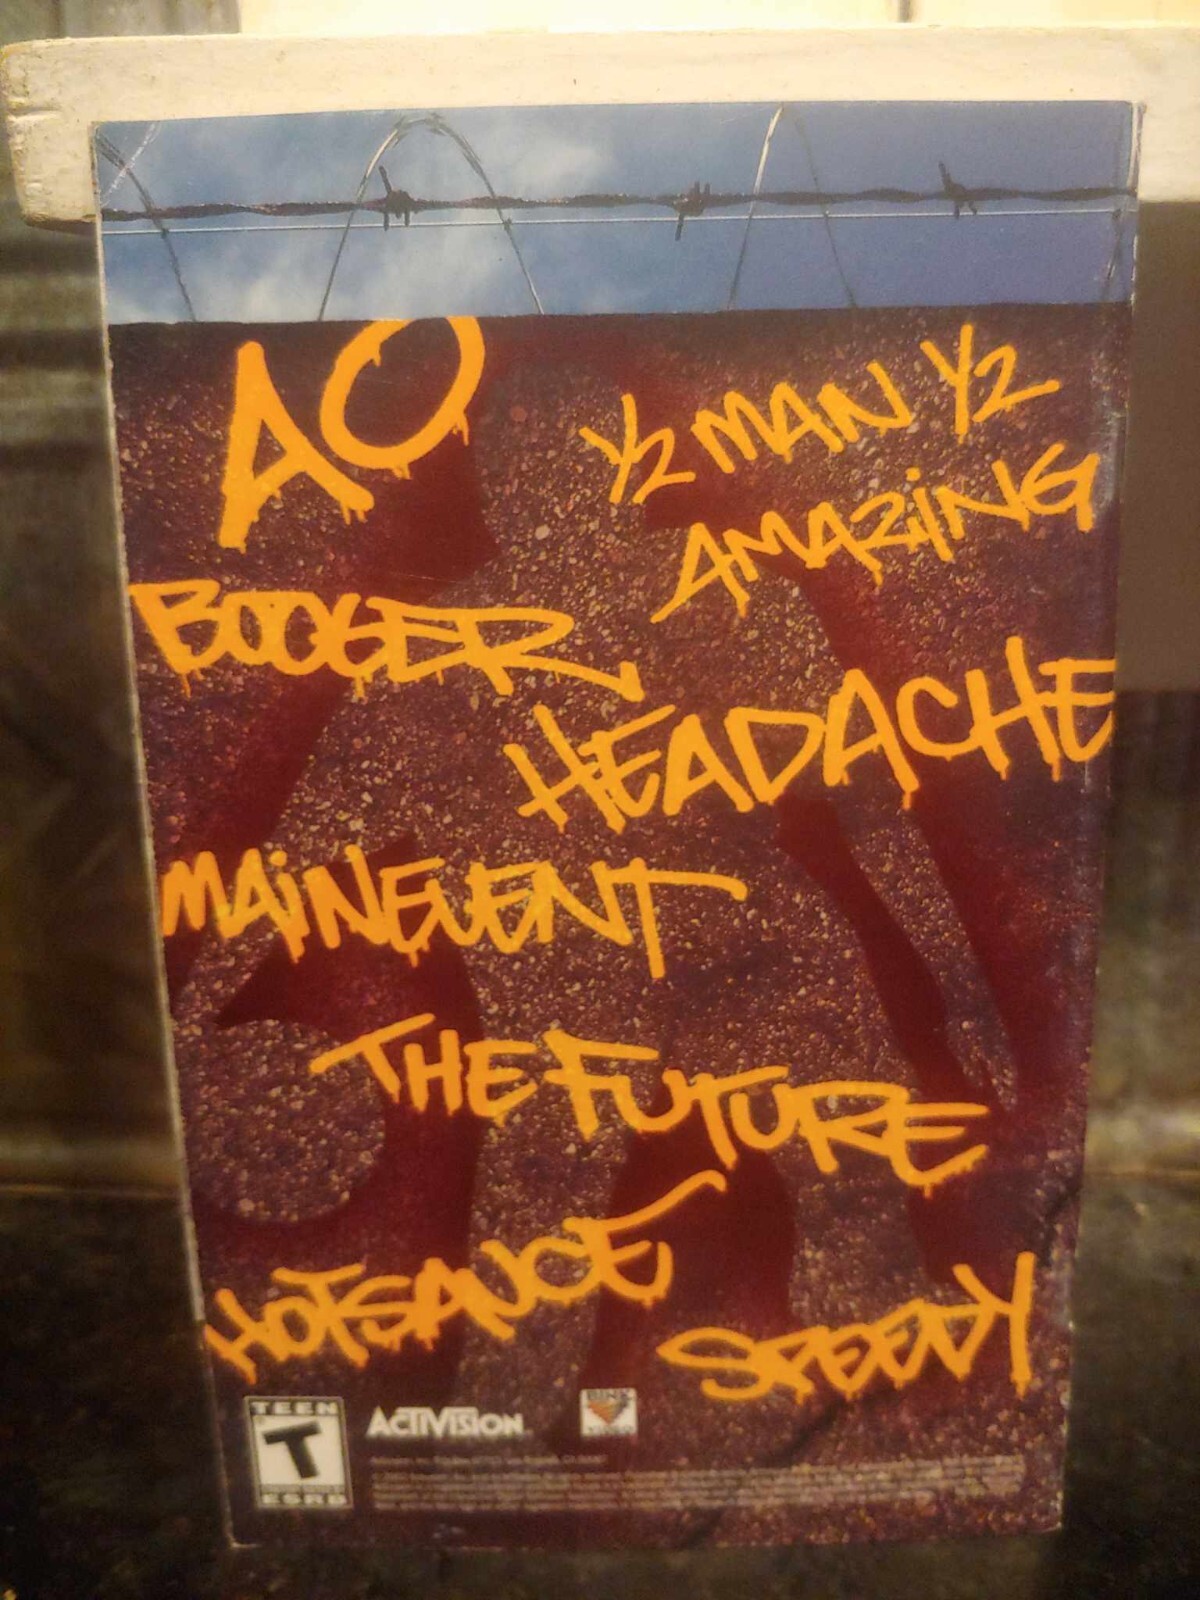 AO
½ MAN ½
AMAZiNG
BOOGER
HEADACHE
MAiNEVENT
THE FUTURE
HOTSAUCE
SPEEDY
TEEN
T
ESRB
ACTIVISION
BINK